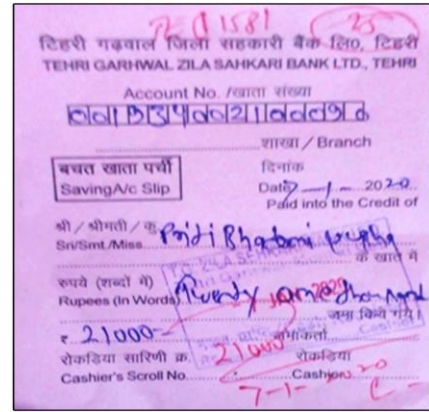 1581 25
टिहरी गढ़वाल जिला सहकारी बैंक लि०, टिहरी
TEHRI GARHWAL ZILA SAHKARI BANK LTD., TEHRI
Account No. /खाता संख्या
शाखा / Branch
बचत खाता पर्ची
SavingA/c Slip
दिनांक
Date 7-1-2020
Paid into the Credit of
श्री / श्रीमती / कु
Sri/Smt./Miss
के खाते में
रुपये (शब्दों में)
Rupees (In Words) Twenty one
जमा किये गये।
₹ 21000-
जमाकर्ता
21000
रोकड़िया सारिणी क्र. रोकड़िया
Cashier's Scroll No. Cashier
7-1-20